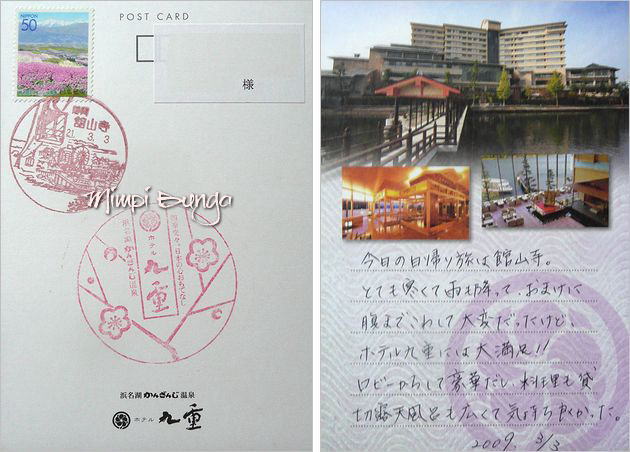 NIPPON
50
POST CARD
様
静岡
館山寺
21.3.3
Mimpi Bunga
浜名湖かんざんじ温泉
ホテル九重
四季楽々、日本の心おもてなし
浜名湖かんざんじ温泉
ホテル 九重
今日の日帰り旅は館山寺。
とても寒くて雨も降って、おまけに
腹までこわして大変だったけど、
ホテル九重には大満足!!
ロビーからして豪華だし、料理も貸
切露天風呂も広くて気持ち良かった。
2009. 3/3